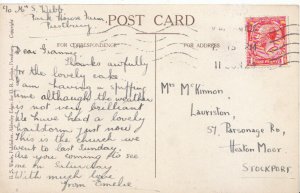 c/o Mrs S. Webb
Park House Inn,
POST CARD
FOR CORRESPONDENCE
FOR ADDRESS
Dear Granny
Thanks awfully
for the lovely cake.
I am having a
time although the weather
is not very brilliant
We have had a lovely
hailstorm just now
This is the church we
went to last Sunday.
Are you coming to see
me on Saturday
With much love
from Emelie
Mrs McKinnon,
Lauriston,
57, Parsonage Rd,
Heaton Moor
STOCKPORT